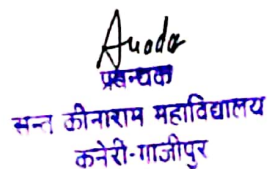 प्रबन्धक
सन्त कीनाराम महाविद्यालय
कनेरी-गाजीपुर